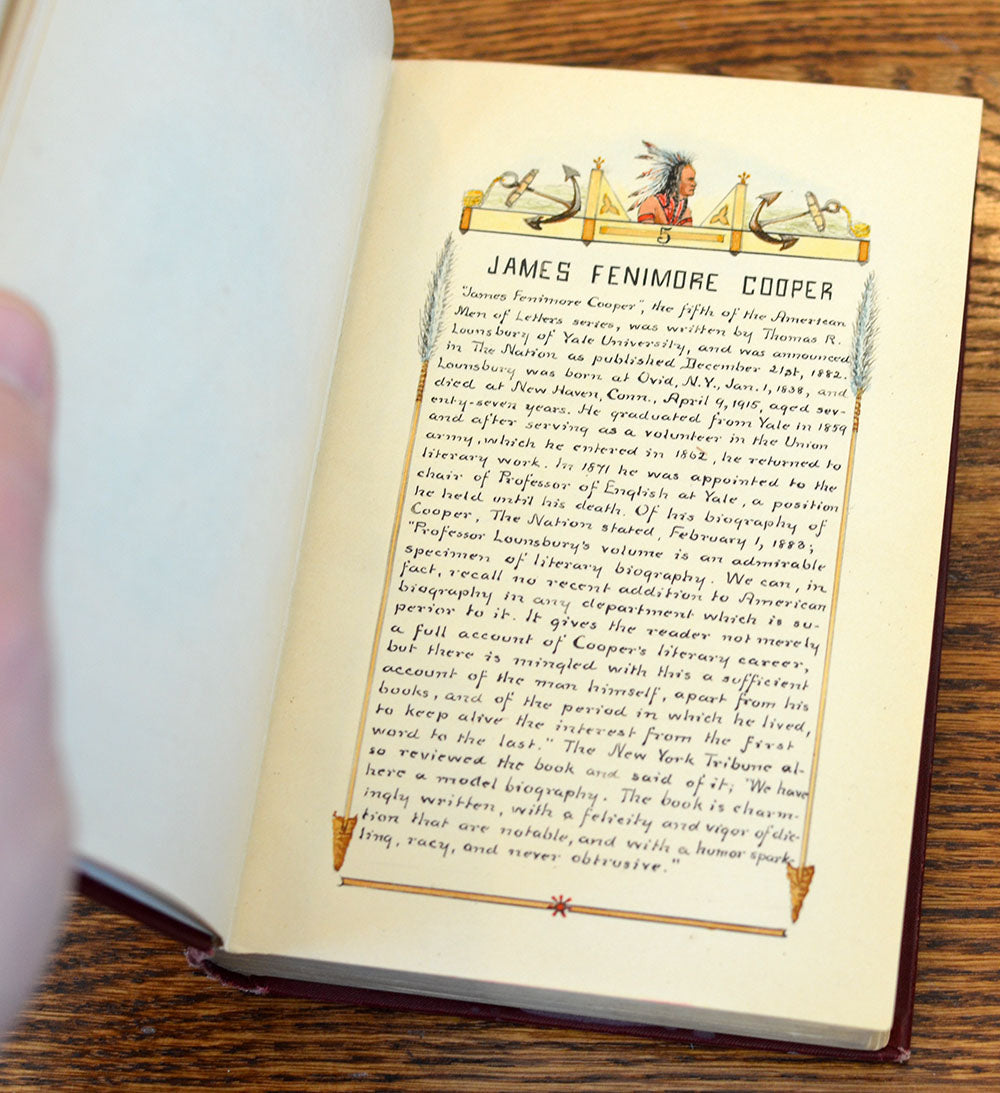 5
JAMES FENIMORE COOPER
"James Fenimore Cooper", the fifth of the American
Men of Letters series, was written by Thomas R.
Lounsbury of Yale University, and was announced
in The Nation as published December 21st, 1882.
Lounsbury was born at Ovid, N.Y., Jan. 1, 1838, and
died at New Haven, Conn., April 9, 1915, aged sev-
enty-seven years. He graduated from Yale in 1859
and after serving as a volunteer in the Union
army, which he entered in 1862, he returned to
literary work. In 1871 he was appointed to the
chair of Professor of English at Yale, a position
he held until his death. Of his biography of
Cooper, The Nation stated, February 1, 1883;
"Professor Lounsbury's volume is an admirable
specimen of literary biography. We can, in
fact, recall no recent addition to American
biography in any department which is su-
perior to it. It gives the reader not merely
a full account of Cooper's literary career,
but there is mingled with this a sufficient
account of the man himself, apart from his
books, and of the period in which he lived,
to keep alive the interest from the first
word to the last." The New York Tribune al-
so reviewed the book and said of it; "We have
here a model biography. The book is charm-
ingly written, with a felicity and vigor of dic-
tion that are notable, and with a humor spark-
ling, racy, and never obtrusive."